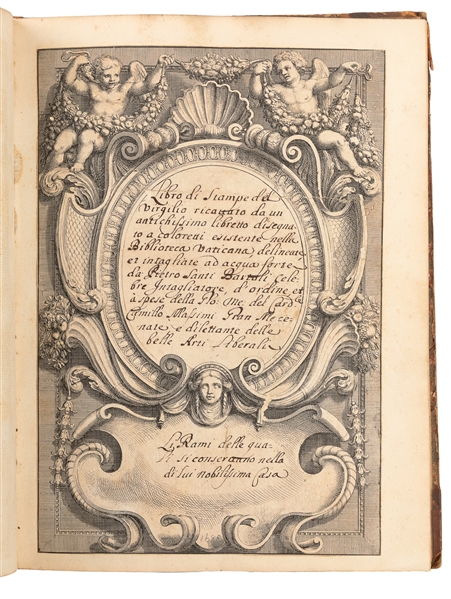 Libro di Stampe del
Virgilio ricavato da un
antichissimo libretto disegna-
to a coloretti esistente nella
Biblioteca Vaticana, delineate
et intagliate ad acqua forte
da Pietro Santi Bartoli Cele-
bre Intagliatore, d'ordine, et
à spese della Glo: me: del Card:le
Camillo Massimi Gran Mece-
nate, e dilettante delle
belle Arti Liberali
Li Rami delle qua-
li si conservanno nella
di lui nobilissima Casa